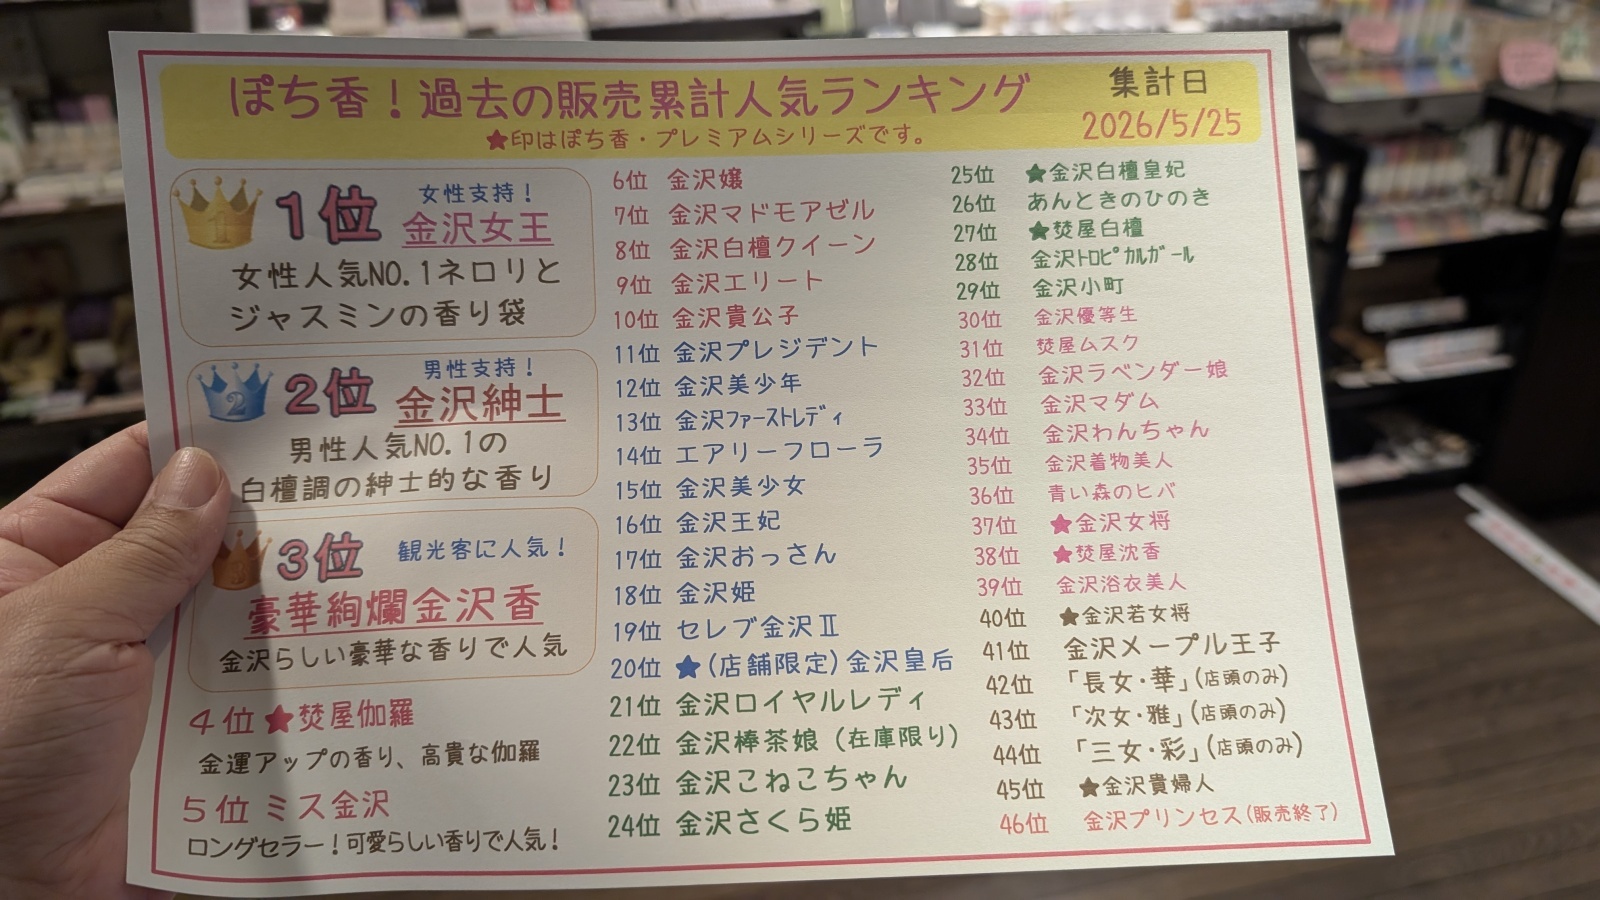 ぽち香！過去の販売累計人気ランキング
★印はぽち香・プレミアムシリーズです。
集計日
2026/5/25
1
1位
女性支持！
金沢女王
女性人気NO.1ネロリと
ジャスミンの香り袋
2
2位
男性支持！
金沢紳士
男性人気NO.1の
白檀調の紳士的な香り
3
3位
観光客に人気！
豪華絢爛金沢香
金沢らしい豪華な香りで人気
4位 ★焚屋伽羅
金運アップの香り、高貴な伽羅
5位 ミス金沢
ロングセラー！可愛らしい香りで人気！
6位 金沢嬢
7位 金沢マドモアゼル
8位 金沢白檀クイーン
9位 金沢エリート
10位 金沢貴公子
11位 金沢プレジデント
12位 金沢美少年
13位 金沢ﾌｧｰｽﾄﾚﾃﾞｨ
14位 エアリーフローラ
15位 金沢美少女
16位 金沢王妃
17位 金沢おっさん
18位 金沢姫
19位 セレブ金沢Ⅱ
20位 ★(店舗限定)金沢皇后
21位 金沢ロイヤルレディ
22位 金沢棒茶娘（在庫限り）
23位 金沢こねこちゃん
24位 金沢さくら姫
25位 ★金沢白檀皇妃
26位 あんときのひのき
27位 ★焚屋白檀
28位 金沢ﾄﾛﾋﾟｶﾙｶﾞｰﾙ
29位 金沢小町
30位 金沢優等生
31位 焚屋ムスク
32位 金沢ラベンダー娘
33位 金沢マダム
34位 金沢わんちゃん
35位 金沢着物美人
36位 青い森のヒバ
37位 ★金沢女将
38位 ★焚屋沈香
39位 金沢浴衣美人
40位 ★金沢若女将
41位 金沢メープル王子
42位 「長女・華」(店頭のみ)
43位 「次女・雅」(店頭のみ)
44位 「三女・彩」(店頭のみ)
45位 ★金沢貴婦人
46位 金沢プリンセス(販売終了)